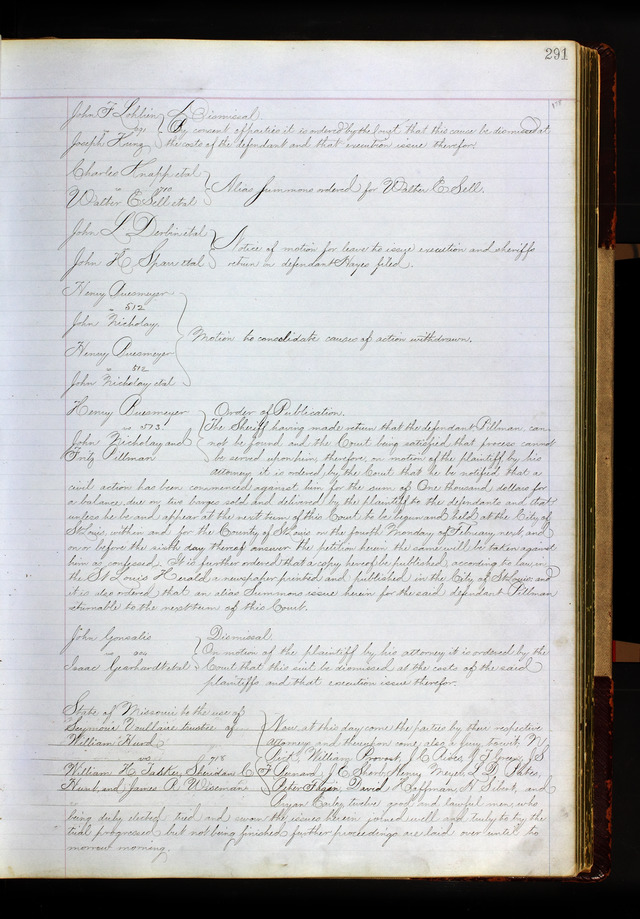 291
John F Lohbein
vs
Joseph Kung
Dismissal
By consent of parties it is ordered by the Court that this cause be dismissed at
the costs of the defendant and that execution issue therefor.
Charles Knapp etal
vs 700
Walter E Sell etal
Alias Summons ordered for Walter E Sell.
John L Derbin etal
vs
John H Sparr etal
Notice of motion for leave to issue execution and sheriffs
return on defendant Hayes filed.
Henry Quesmeyer
vs 512
John Nicholay.
Henry Quesmeyer
vs 512
John Nicholay etal
Motion to consolidate causes of action withdrawn.
Henry Quesmeyer
vs 573
John Nicholay and
Fritz Pillman
Order of Publication.
The Sheriff having made return that the defendant Pillman can
not be found and the Court being satisfied that process cannot
be served upon him, therefore, on motion of the plaintiff by his
attorney it is ordered by the Court that he be notified that a
civil action has been commenced against him for the sum of One thousand dollars for
a balance due on two barges sold and delivered by the plaintiff to the defendants and that
unless he be and appear at the next term of this Court to be begun and held at the City of
St Louis within and for the County of St Louis on the fourth Monday of February next, and
on or before the sixth day thereof answer the petition herein the same will be taken against
him as confessed. It is further ordered that a copy hereof be published according to law, in
the St Louis Herald a newspaper printed and published in the City of St Louis, and
it is also ordered that an alias Summons issue herein for the said defendant Pillman
returnable to the next term of this Court.
John Gonsalis
vs
Isaac Gearhardt etal
Dismissal
On motion of the plaintiff by his attorney it is ordered by the
Court that this suit be dismissed at the costs of the said
plaintiffs and that execution issue therefor.
State of Missouri to the use of
Seymour Voullaire trustee of
William Hurd
vs 718
William H Tatster, Sheridan C
Hunt, and James A Wiseman
Now at this day come the parties by their respective
attorneys and thereupon come also a jury towit, N
William Provost, J C Rives, J F Lowen, J S
F Durand, J C Shore, Henry Meyer, L D Yates,
Peter Flynn David Hoffman, N Silent, and
Bryan Early twelve good and lawful men, who
being duly elected tried and sworn the issues herein joined well and truly to try, the
trial progressed but not being finished further proceedings are laid over until to
morrow morning.